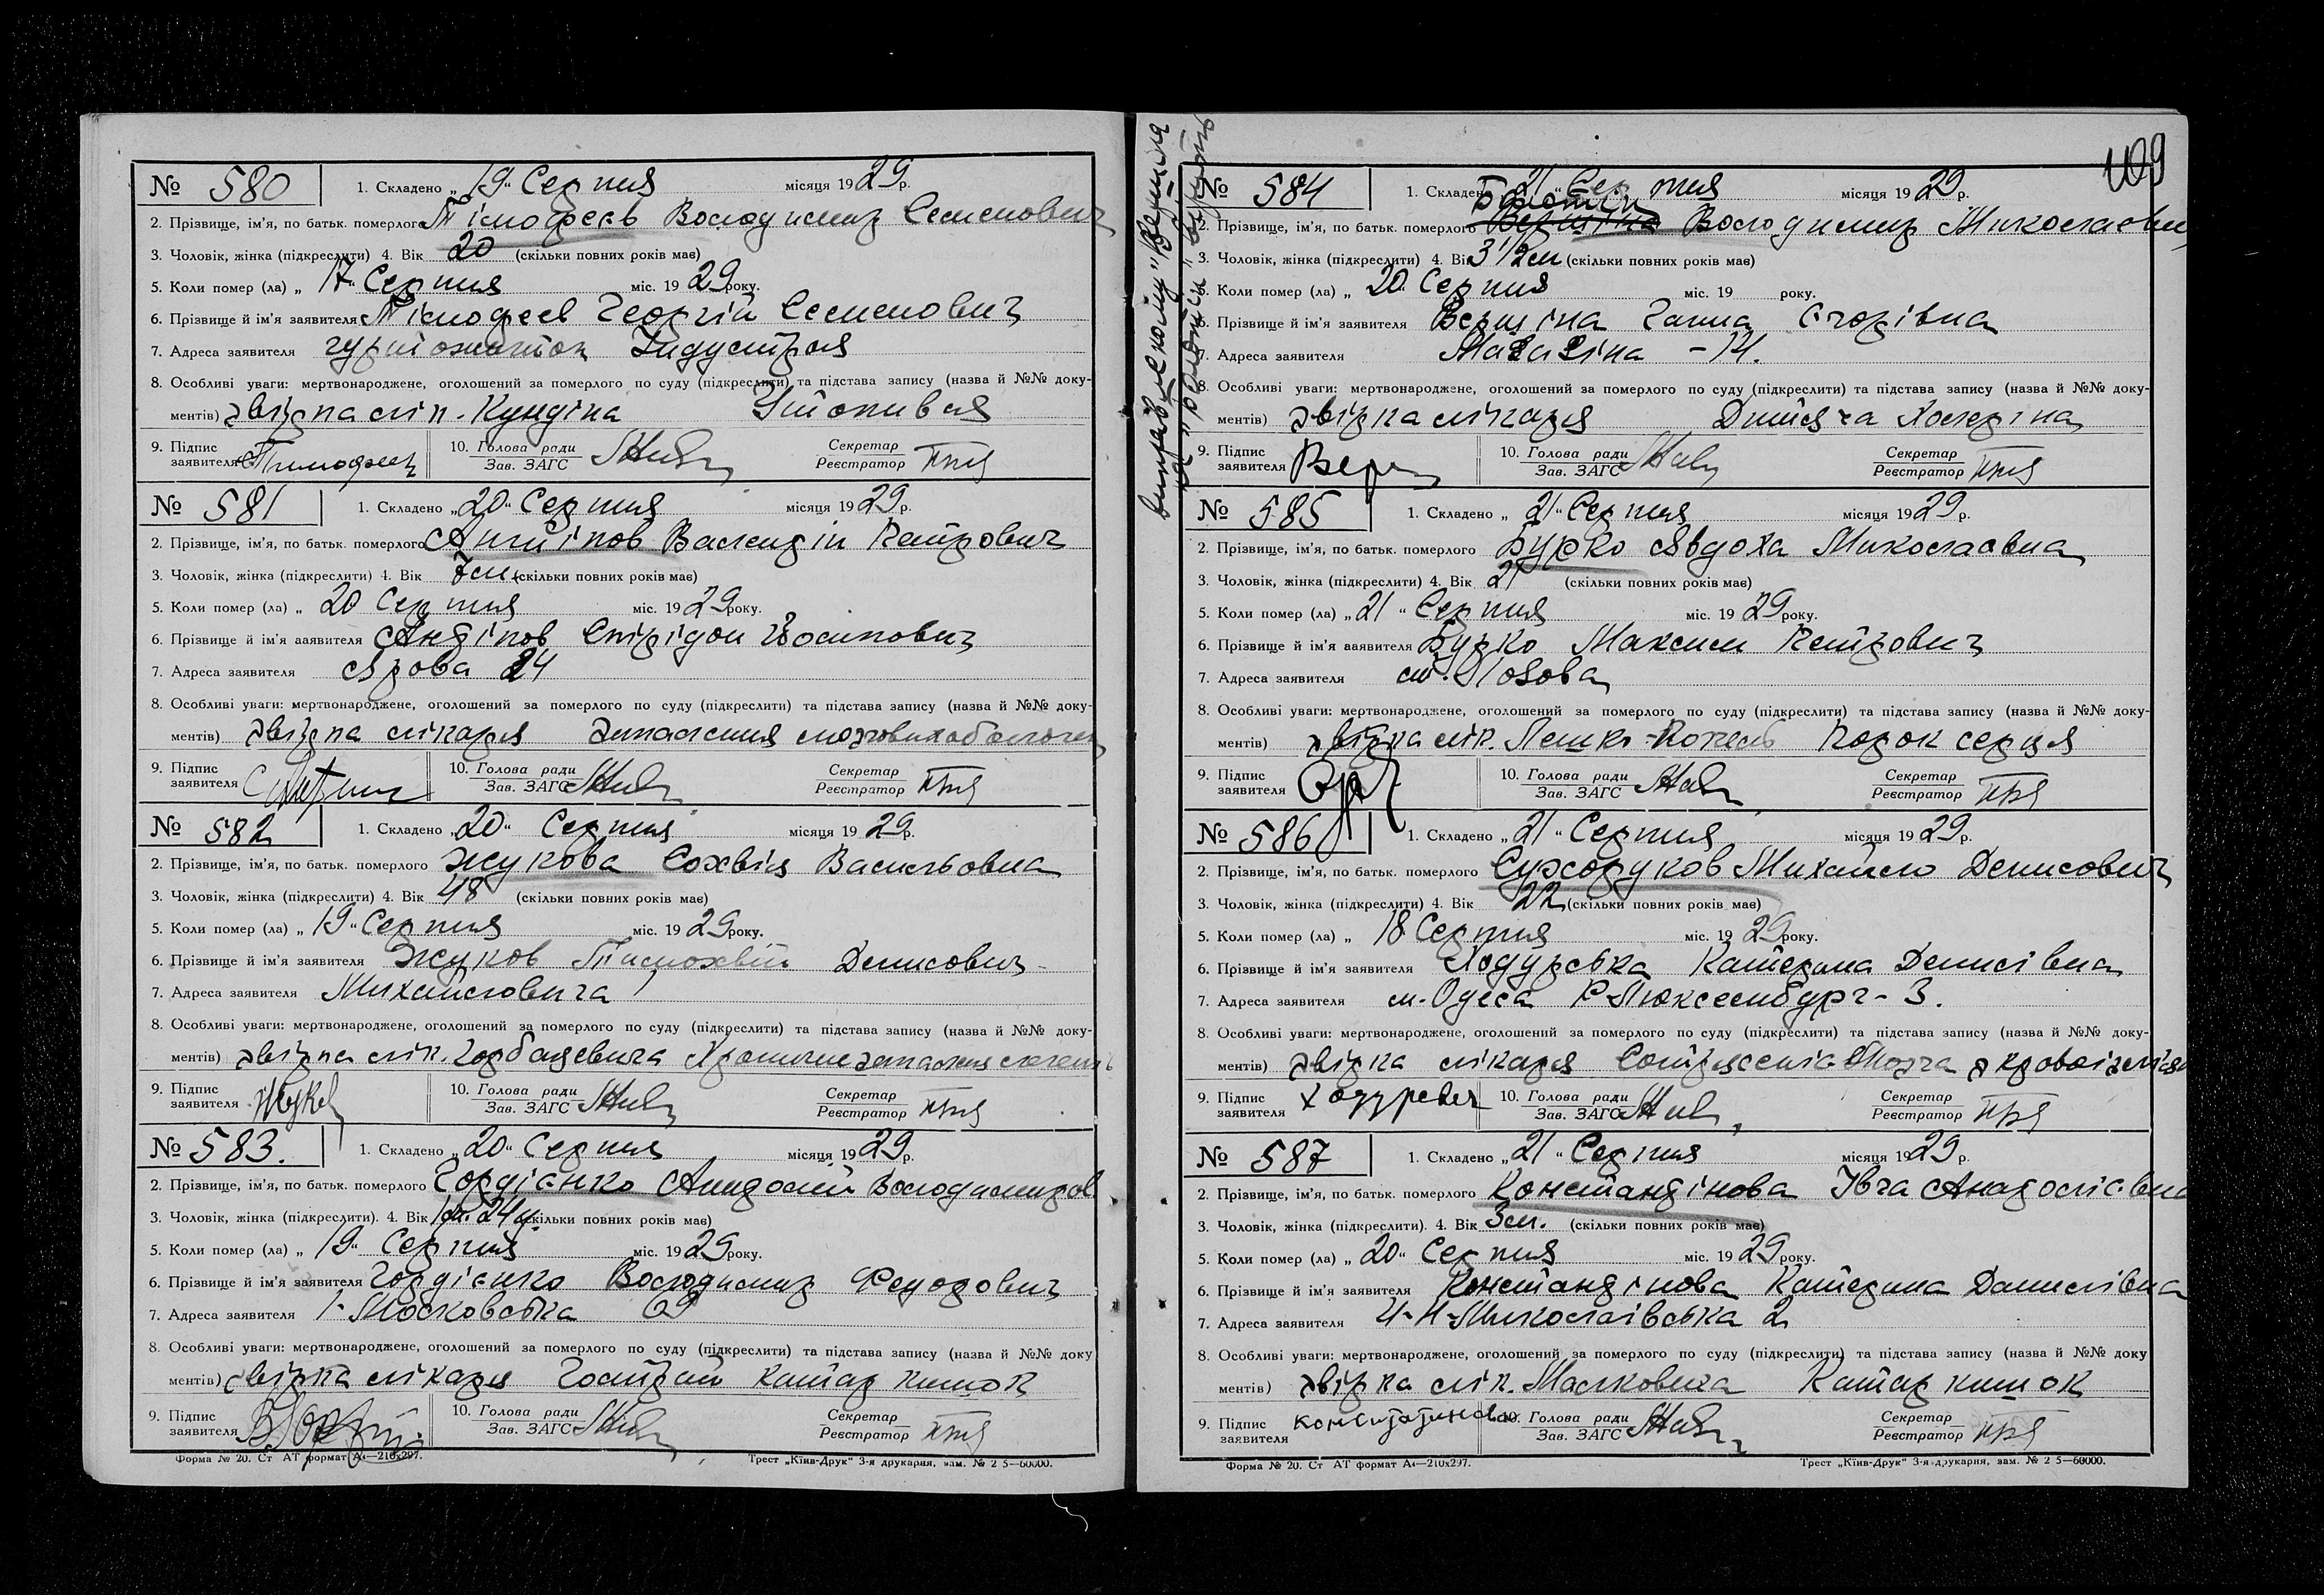 № 580 1. Складено „19“ Серпня місяця 1929 р.
2. Прізвище, ім'я, по батьк. померлого Тімофеєв Володимир Семенович
3. Чоловік, жінка (підкреслити) 4. Вік 20 (скільки повних років має)
5. Коли помер (ла) „17“ Серпня міс. 1929 року.
6. Прізвище й ім'я заявителя Тімофеєв Георгій Семенович
7. Адреса заявителя гуртожиток Індустрія
8. Особливі уваги: мертвонароджене, оголошений за померлого по суду (підкреслити) та підстава запису (назва й №№ доку-
ментів) звірка лік. Кундіна Утопився
9. Підпис заявителя 10. Голова ради Зав. ЗАГС Секретар Реєстратор
№ 581 1. Складено „20“ Серпня місяця 1929 р.
2. Прізвище, ім'я, по батьк. померлого Антіпов Валендін Петрович
3. Чоловік, жінка (підкреслити) 4. Вік 7м. (скільки повних років має)
5. Коли помер (ла) „20 Серпня міс. 1929 року.
6. Прізвище й ім'я заявителя Андіпов Спірідон Йосипович
7. Адреса заявителя Ярова 24
8. Особливі уваги: мертвонароджене, оголошений за померлого по суду (підкреслити) та підстава запису (назва й №№ доку-
ментів) звірка лікаря Запалення
9. Підпис заявителя 10. Голова ради Зав. ЗАГС Секретар Реєстратор
№ 582 1. Складено „20“ Серпня місяця 1929 р.
2. Прізвище, ім'я, по батьк. померлого Жукова Софвія Васильовна
3. Чоловік, жінка (підкреслити) 4. Вік 48 (скільки повних років має)
5. Коли помер (ла) „19“ Серпня міс. 1929 року.
6. Прізвище й ім'я заявителя Жуков Тимохвій Денисович
7. Адреса заявителя Михайловича
8. Особливі уваги: мертвонароджене, оголошений за померлого по суду (підкреслити) та підстава запису (назва й №№ доку-
ментів) звірка лік. Горбацевича
9. Підпис заявителя Жуков 10. Голова ради Зав. ЗАГС Секретар Реєстратор
№ 583. 1. Складено „20“ Серпня місяця 1929 р.
2. Прізвище, ім'я, по батьк. померлого Гордієнко Володимиров
3. Чоловік, жінка (підкреслити). 4. Вік (скільки повних років має)
5. Коли помер (ла) „19“ Серпня міс. 1929 року.
6. Прізвище й ім'я заявителя Гордієнко Володимир Федорович
7. Адреса заявителя 1-Московська 69
8. Особливі уваги: мертвонароджене, оголошений за померлого по суду (підкреслити) та підстава запису (назва й №№ доку
ментів) звірка лікаря Гострий катар кишок
9. Підпис заявителя 10. Голова ради Зав. ЗАГС Секретар Реєстратор
Форма № 20. Ст АТ формат А4—210х297. Трест „Київ-Друк“ 3-я друкарня, зам. № 2 5—60000.
109
№ 584 1. Складено „21“ Серпня місяця 1929 р.
2. Прізвище, ім'я, по батьк. померлого Вершіна Володимир Миколаєвич
3. Чоловік, жінка (підкреслити) 4. Вік 3 1/2 м (скільки повних років має)
5. Коли помер (ла) „20 Серпня міс. 19 року.
6. Прізвище й ім'я заявителя Вершіна Ганна Єгорівна
7. Адреса заявителя
8. Особливі уваги: мертвонароджене, оголошений за померлого по суду (підкреслити) та підстава запису (назва й №№ доку-
ментів) звірка лікаря Дитяча холеріна
9. Підпис заявителя 10. Голова ради Зав. ЗАГС Секретар Реєстратор
№ 585 1. Складено „21“ Серпня місяця 1929 р.
2. Прізвище, ім'я, по батьк. померлого Бурко Явдоха Миколаєвна
3. Чоловік, жінка (підкреслити) 4. Вік 21 (скільки повних років має)
5. Коли помер (ла) „21“ Серпня міс. 1929 року.
6. Прізвище й ім'я заявителя Бурко Максим Петрович
7. Адреса заявителя ст. Лозова
8. Особливі уваги: мертвонароджене, оголошений за померлого по суду (підкреслити) та підстава запису (назва й №№ доку-
ментів) звірка лік. Порок серця
9. Підпис заявителя 10. Голова ради Зав. ЗАГС Секретар Реєстратор
№ 586 1. Складено „21“ Серпня місяця 1929 р.
2. Прізвище, ім'я, по батьк. померлого Сухоруков Михайло Денисович
3. Чоловік, жінка (підкреслити) 4. Вік 22 (скільки повних років має)
5. Коли помер (ла) „18 Серпня міс. 1929 року.
6. Прізвище й ім'я заявителя Ходурська Катерина Денисівна
7. Адреса заявителя м. Одеса Р Люксембург - 3.
8. Особливі уваги: мертвонароджене, оголошений за померлого по суду (підкреслити) та підстава запису (назва й №№ доку-
ментів) звірка лікаря
9. Підпис заявителя 10. Голова ради Зав. ЗАГС Секретар Реєстратор
№ 587 1. Складено „21“ Серпня місяця 1929 р.
2. Прізвище, ім'я, по батьк. померлого Констандінова Івга
3. Чоловік, жінка (підкреслити). 4. Вік 3м. (скільки повних років має)
5. Коли помер (ла) „20“ Серпня міс. 1929 року.
6. Прізвище й ім'я заявителя Констандінова Катерина Данилівна
7. Адреса заявителя Миколаївська 2
8. Особливі уваги: мертвонароджене, оголошений за померлого по суду (підкреслити) та підстава запису (назва й №№ доку
ментів) звірка лік. Малковича Катар кишок
9. Підпис заявителя 10. Голова ради Зав. ЗАГС Секретар Реєстратор
Форма № 20. Ст АТ формат А4—210х297. Трест „Київ-Друк“ 3-я друкарня, зам. № 2 5—60000.